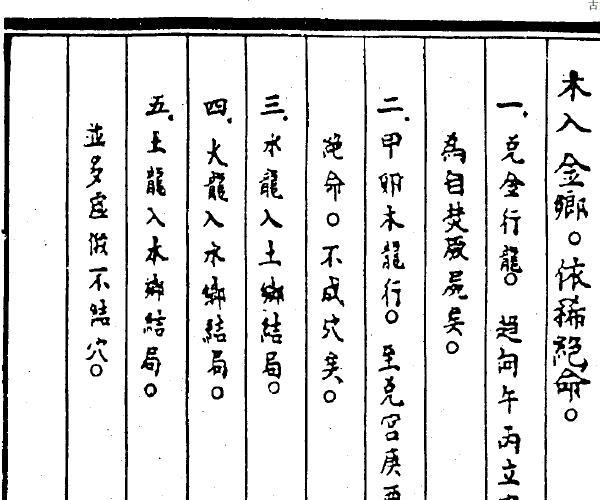 木入金鄉。依稀絕命。
一、兌金行龍。趨向午丙立
為自焚厥屍矣。
二、甲卯木龍行。至兌宮庚酉
絕命。不成穴矣。
三、水龍入土鄉結局。
四、火龍入水鄉結局。
五、土龍入木鄉結局。
並多虛做不結穴。
古